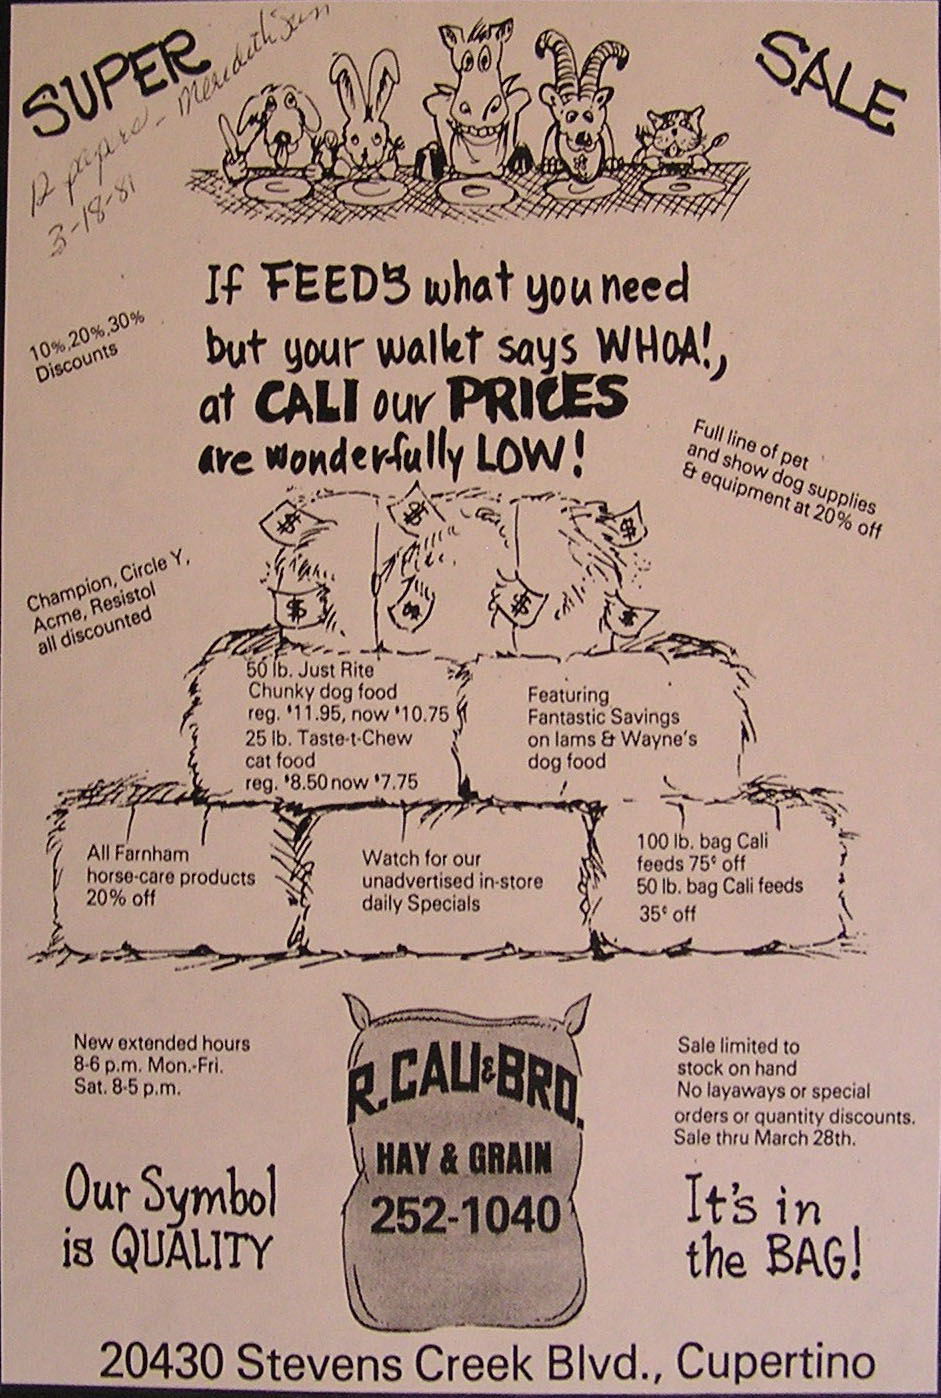 SUPER
SALE
12 papers - Meredith Sun
3-18-81
If FEED'S what you need
but your wallet says WHOA!,
at CALI our PRICES
are wonderfully LOW!
10%, 20%, 30%
Discounts
Full line of pet
and show dog supplies
& equipment at 20% off
Champion, Circle Y,
Acme, Resistol
all discounted
$ $ $
$ $ $ $
50 lb. Just Rite
Chunky dog food
reg. $11.95, now $10.75
25 lb. Taste-t-Chew
cat food
reg. $8.50 now $7.75
Featuring
Fantastic Savings
on Iams & Wayne's
dog food
All Farnham
horse-care products
20% off
Watch for our
unadvertised in-store
daily Specials
100 lb. bag Cali
feeds 75¢ off
50 lb. bag Cali feeds
35¢ off
New extended hours
8-6 p.m. Mon.-Fri.
Sat. 8-5 p.m.
R. CALI & BRO.
HAY & GRAIN
252-1040
Sale limited to
stock on hand
No layaways or special
orders or quantity discounts.
Sale thru March 28th.
Our Symbol
is QUALITY
It's in
the BAG!
20430 Stevens Creek Blvd., Cupertino